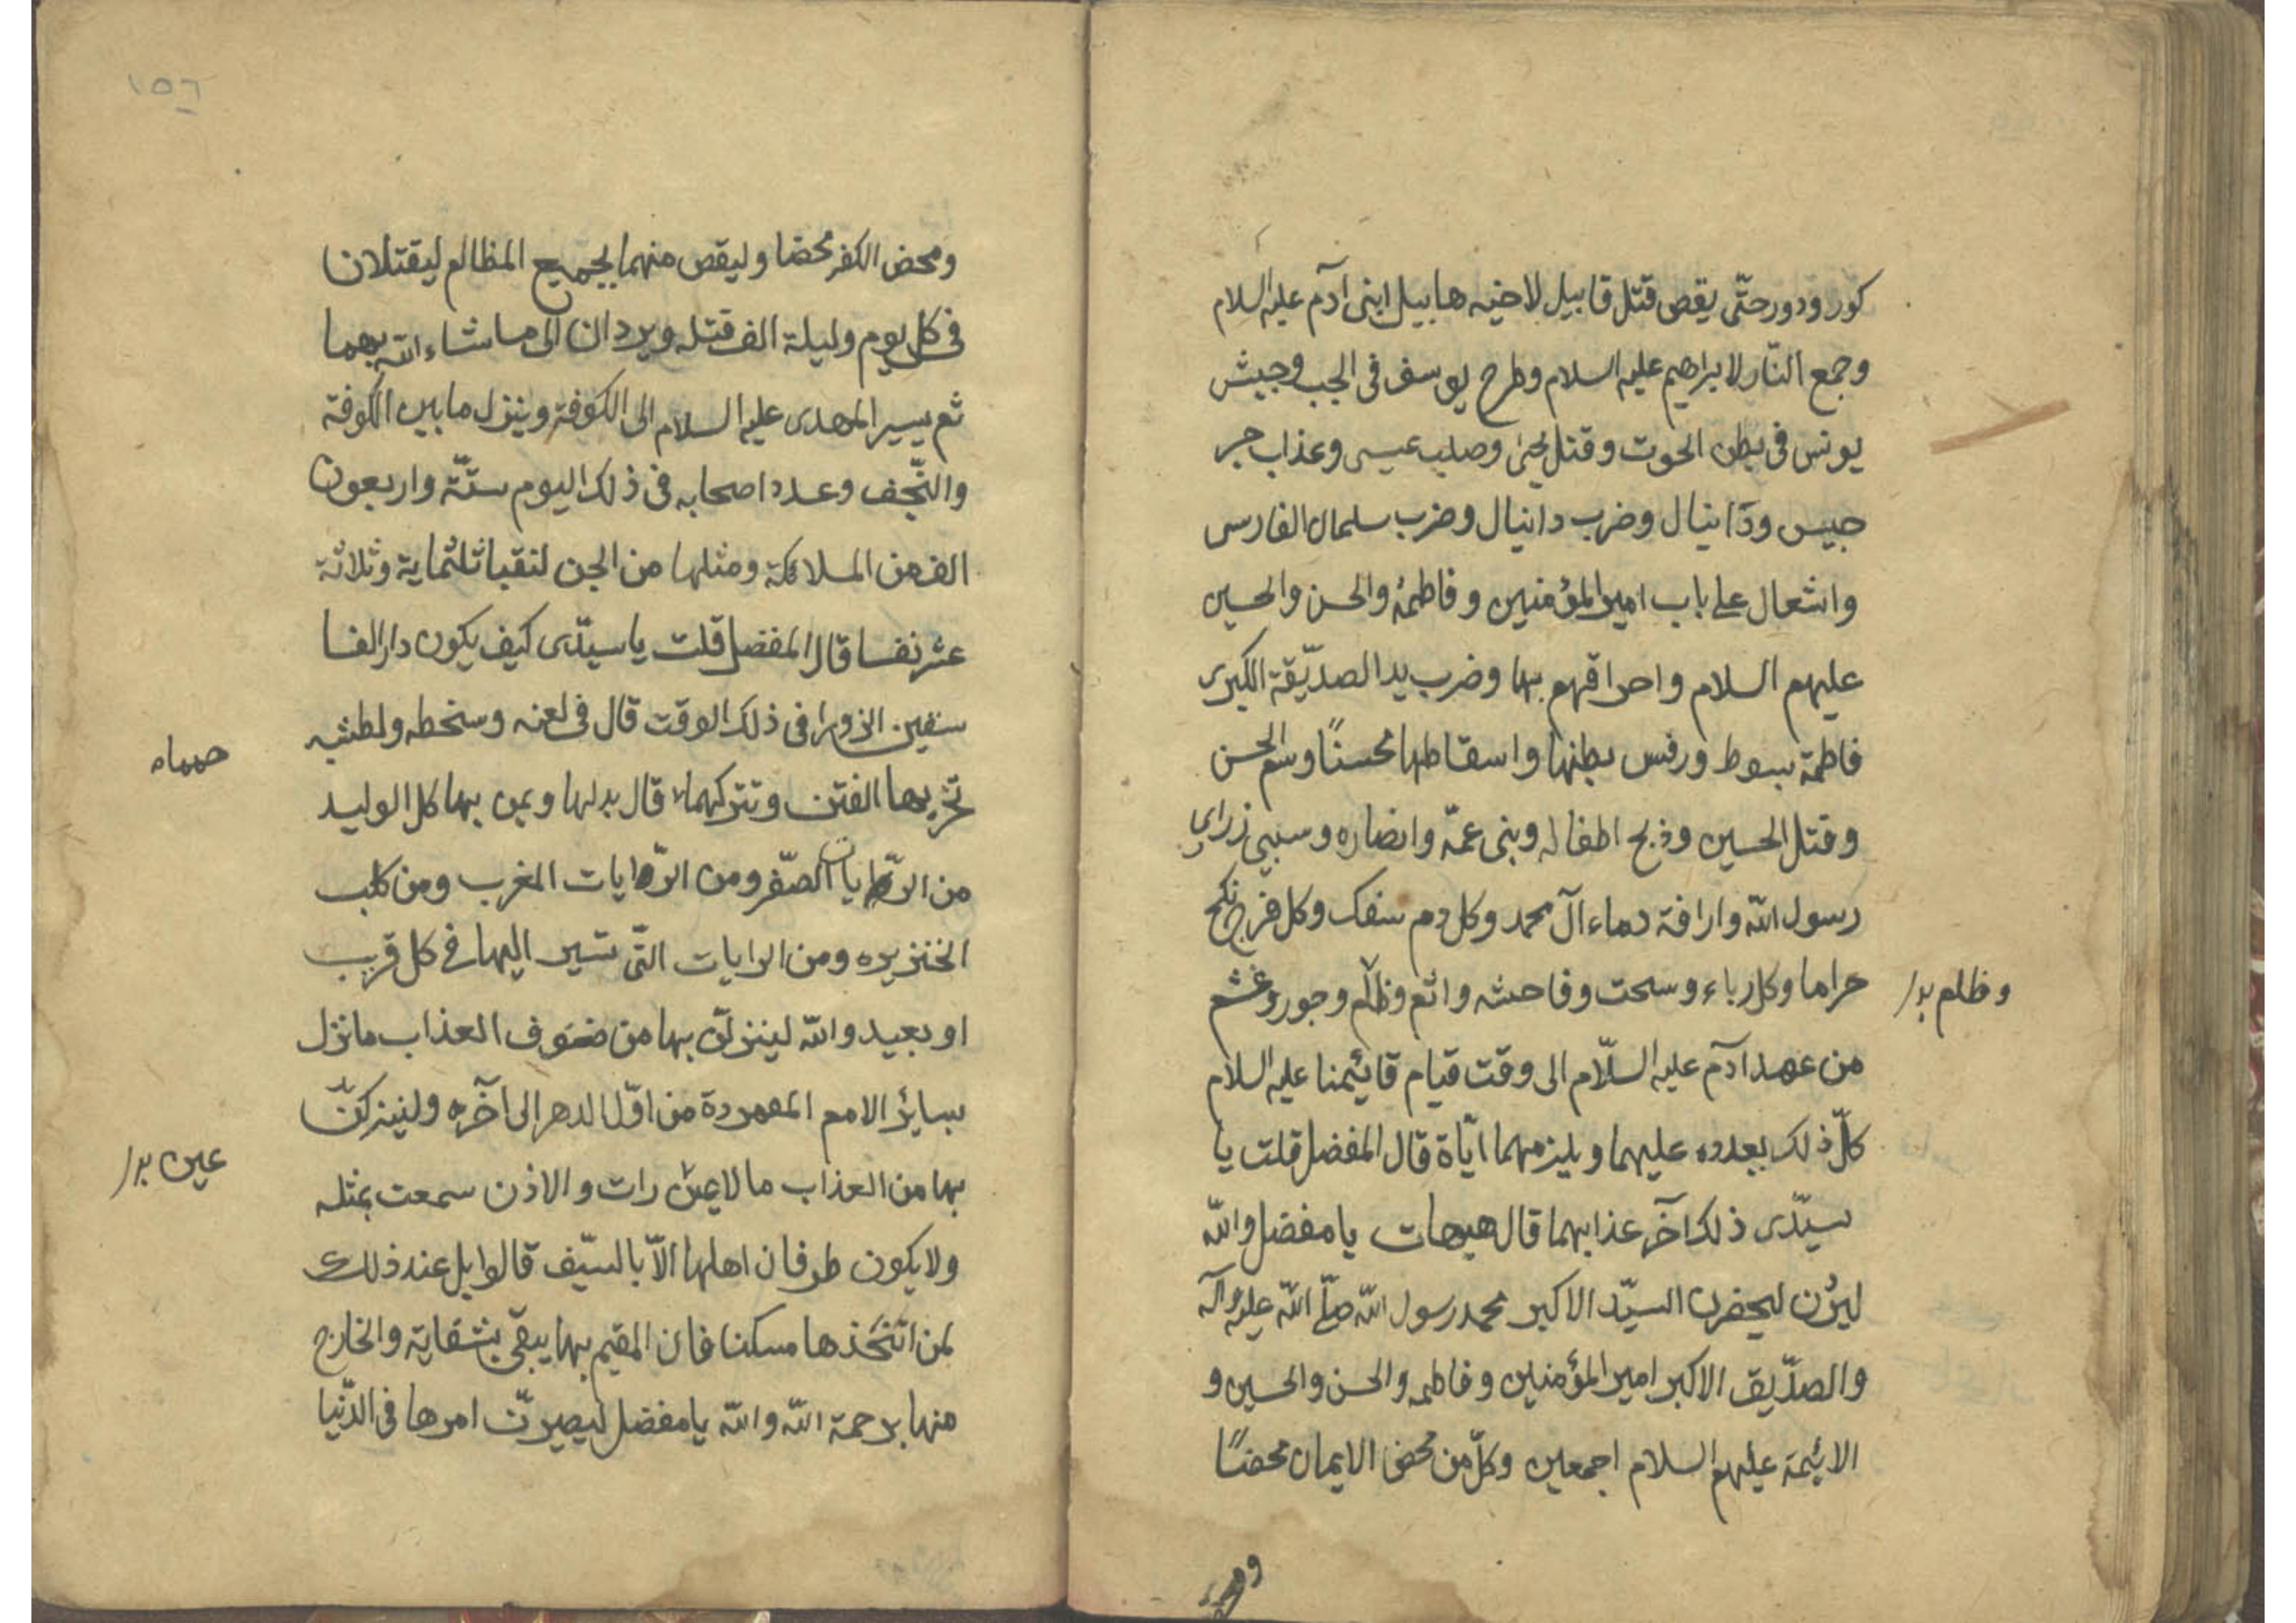 كور ودور حتّى يقص قتل قابيل لاخيه هابيل ابنى آدم عليه السلام
وجمع النّار لابراهيم عليه السلام وطرح يوسف فى الجب وحبش
يونس فى بطن الحوت وقتل يحيى وصلب عيسى وعذاب جر
جيس ودانيال وضرب دانيال وضرب سلمان الفارسى
واشعال على باب امير المؤمنين وفاطمة والحسن والحسين
عليهم السلام واحراقهم بها وضرب يد الصدّيقة الكبرى
فاطمة بسوط ورفس بطنها واسقاطها محسنًا وسم الحسن
وقتل الحسين وذبح اطفاله وبنى عمّه وانصاره وسبي ذراي
رسول الله وارافة دماء آل محمد وكل دم سفك وكل فرج نكح
حراما وكل رباء وسحت وفاحشه واثم وظلم وجور وغشم
وظلم بدل
من عهد آدم عليه السلّام الى وقت قيام قايئمنا عليه السلام
كلّ ذلك يعدده عليهما ويلزمهما ايّاة قال المفضل قلت يا
سيّدى ذلك آخر عذابهما قال هيهات يا مفضل والله
ليردن ليحضرن السيّد الاكبر محمد رسول الله صلّى الله عليه وآله
والصدّيق الاكبر امير المؤمنين وفاطمه والحسن والحسين و
الائيمة عليهم السلام اجمعين وكلّ من محض الايمان محضًا
ومحض
١٥٦
ومحض الكفر محضا وليقص منهما بجميع المظالم ليقتلان
فى كل يوم وليلة الف قتله ويردان الى ما شاء الله بهما
ثم يسير المهدى عليه السلام الى الكوفة وينزل ما بين الكوفة
والنّجف وعدد اصحابه فى ذلك اليوم ستّة واربعون
الف من الملائكة ومثلها من الجن لنقبا ثلثماية وثلاثة
عشر نفسا قال المفضل قلت يا سيّدى كيف يكون دار الفا
سقين الزورا فى ذلك الوقت قال فى لعنه وسخطه ولطشه
تخربها الفتن وتتركهما قال بدلها وبمن بها كل الوليد
حمماه
من الرّايات الصّفر ومن الرّايات المغرب ومن كلب
الخنزيره ومن الرايات التّى تسير اليها فى كل قريب
او بعيد والله لينزلنّ بها من صنوف العذاب ما نزل
بسايئر الامم المعمردة من اوّل الدهر الى آخره ولنينزكنّ
بها من العذاب ما لا عين رات والاذن سمعت بمثله
عين بدل
ولا يكون طوفان اهلها الاّ بالسّيف قالوابل عند ذلك
لمن اتّخذها مسكنا فان المقيم بها يبقى بشقايه والخارج
منها برحمة الله والله يا مفضل ليصيرنّ امرها فى الدّنيا